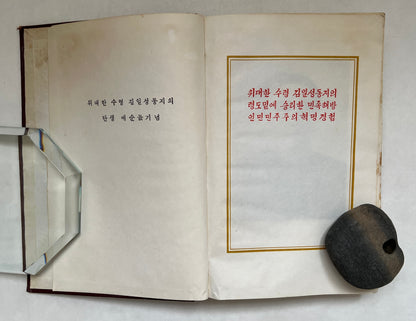 위대한 수령 김일성동지의
탄생 예순돐기념
위대한 수령 김일성동지의
령도밑에 승리한 민족해방
인민민주주의혁명경험